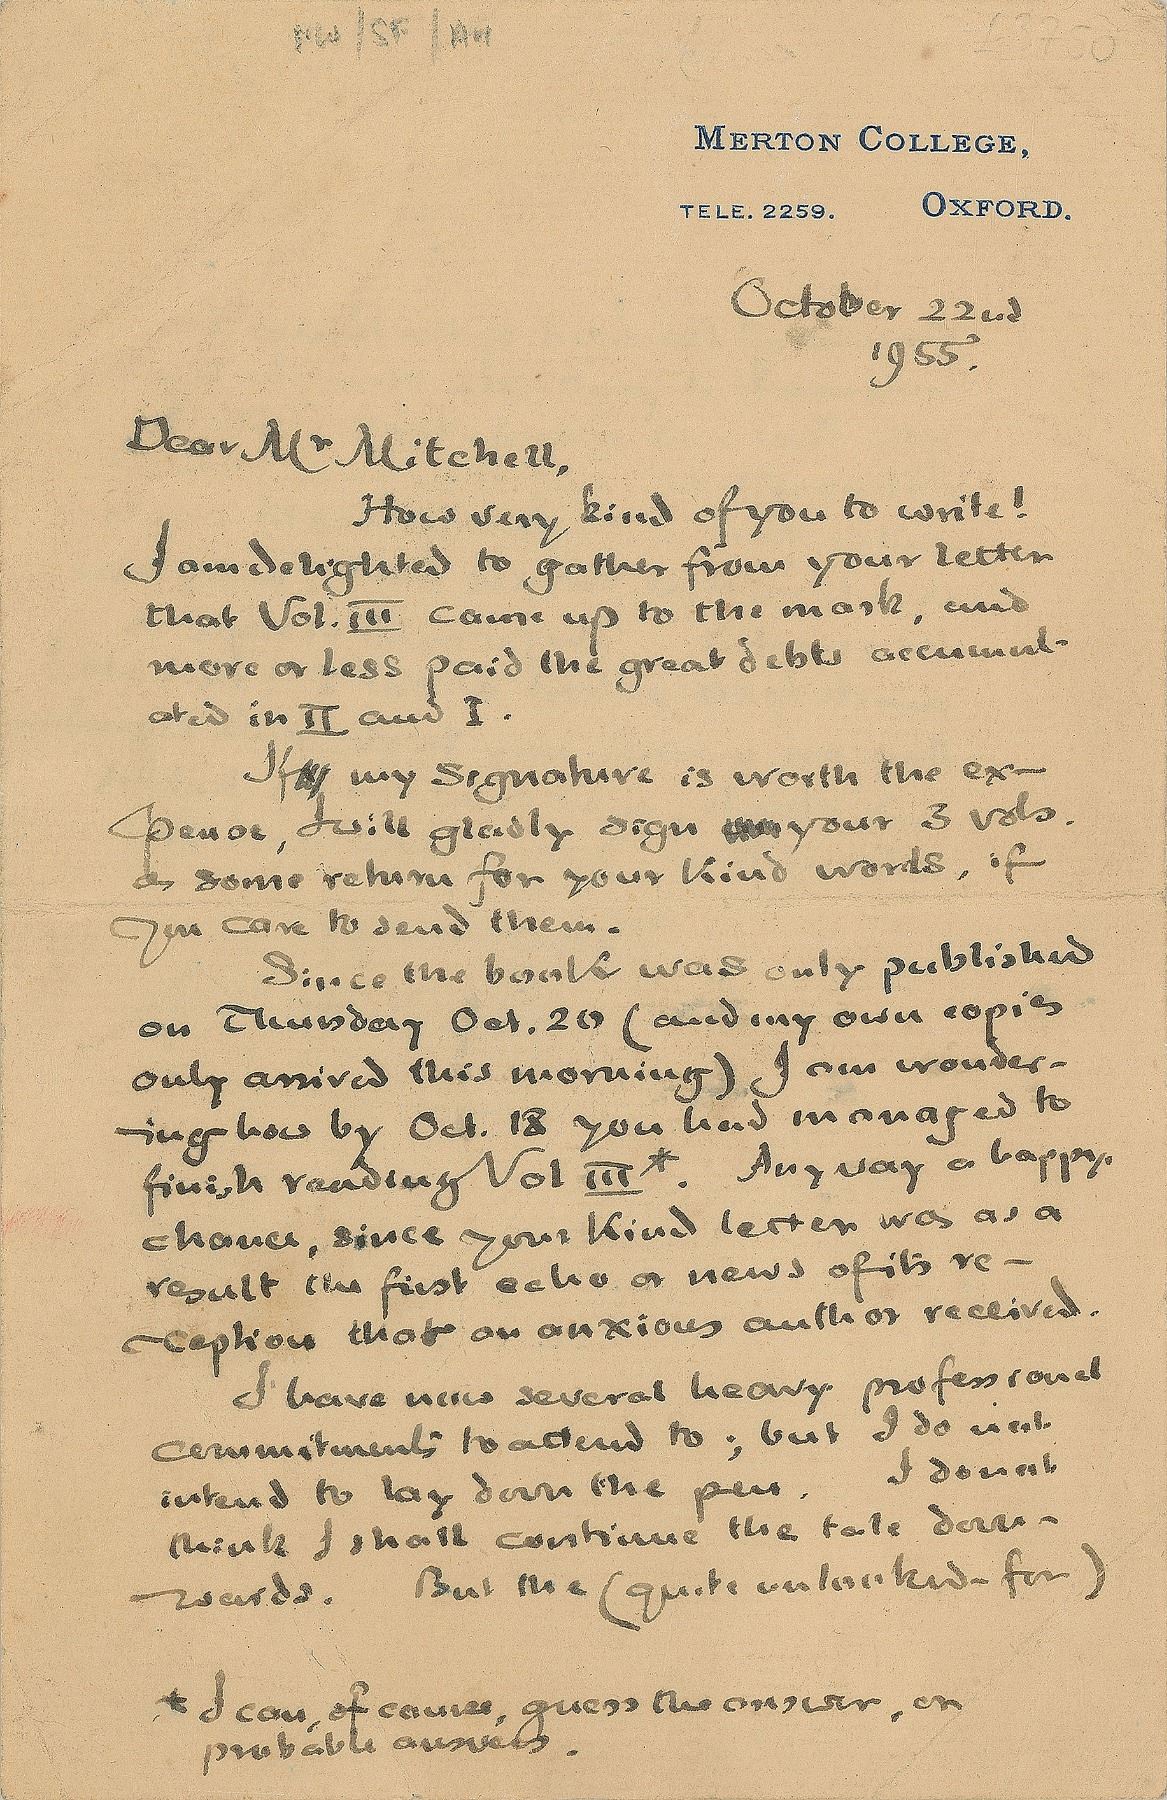 MERTON COLLEGE,
TELE. 2259. OXFORD.
October 22nd
1955.
Dear Mr Mitchell,
How very kind of you to write!
I am delighted to gather from your letter
that Vol. III came up to the mark, and
more or less paid the great debts accumul-
ated in II and I.
If my signature is worth the ex-
pence, I will gladly sign your 3 vols.
as some return for your kind words, if
you care to send them.
Since the book was only published
on Thursday Oct. 20 (and my own copies
only arrived this morning) I am wonder-
-ing how by Oct. 18 you had managed to
finish reading Vol III*. Anyway a happy
chance, since your kind letter was as a
result the first echo or news of its re-
-ception that an anxious author received.
I have now several heavy professional
commitments to attend to; but I do not
intend to lay down the pen. I do not
think I shall continue the tale down-
-wards. But the (quite unlooked-for)
* I can, of course, guess the answer, or
probable answers.